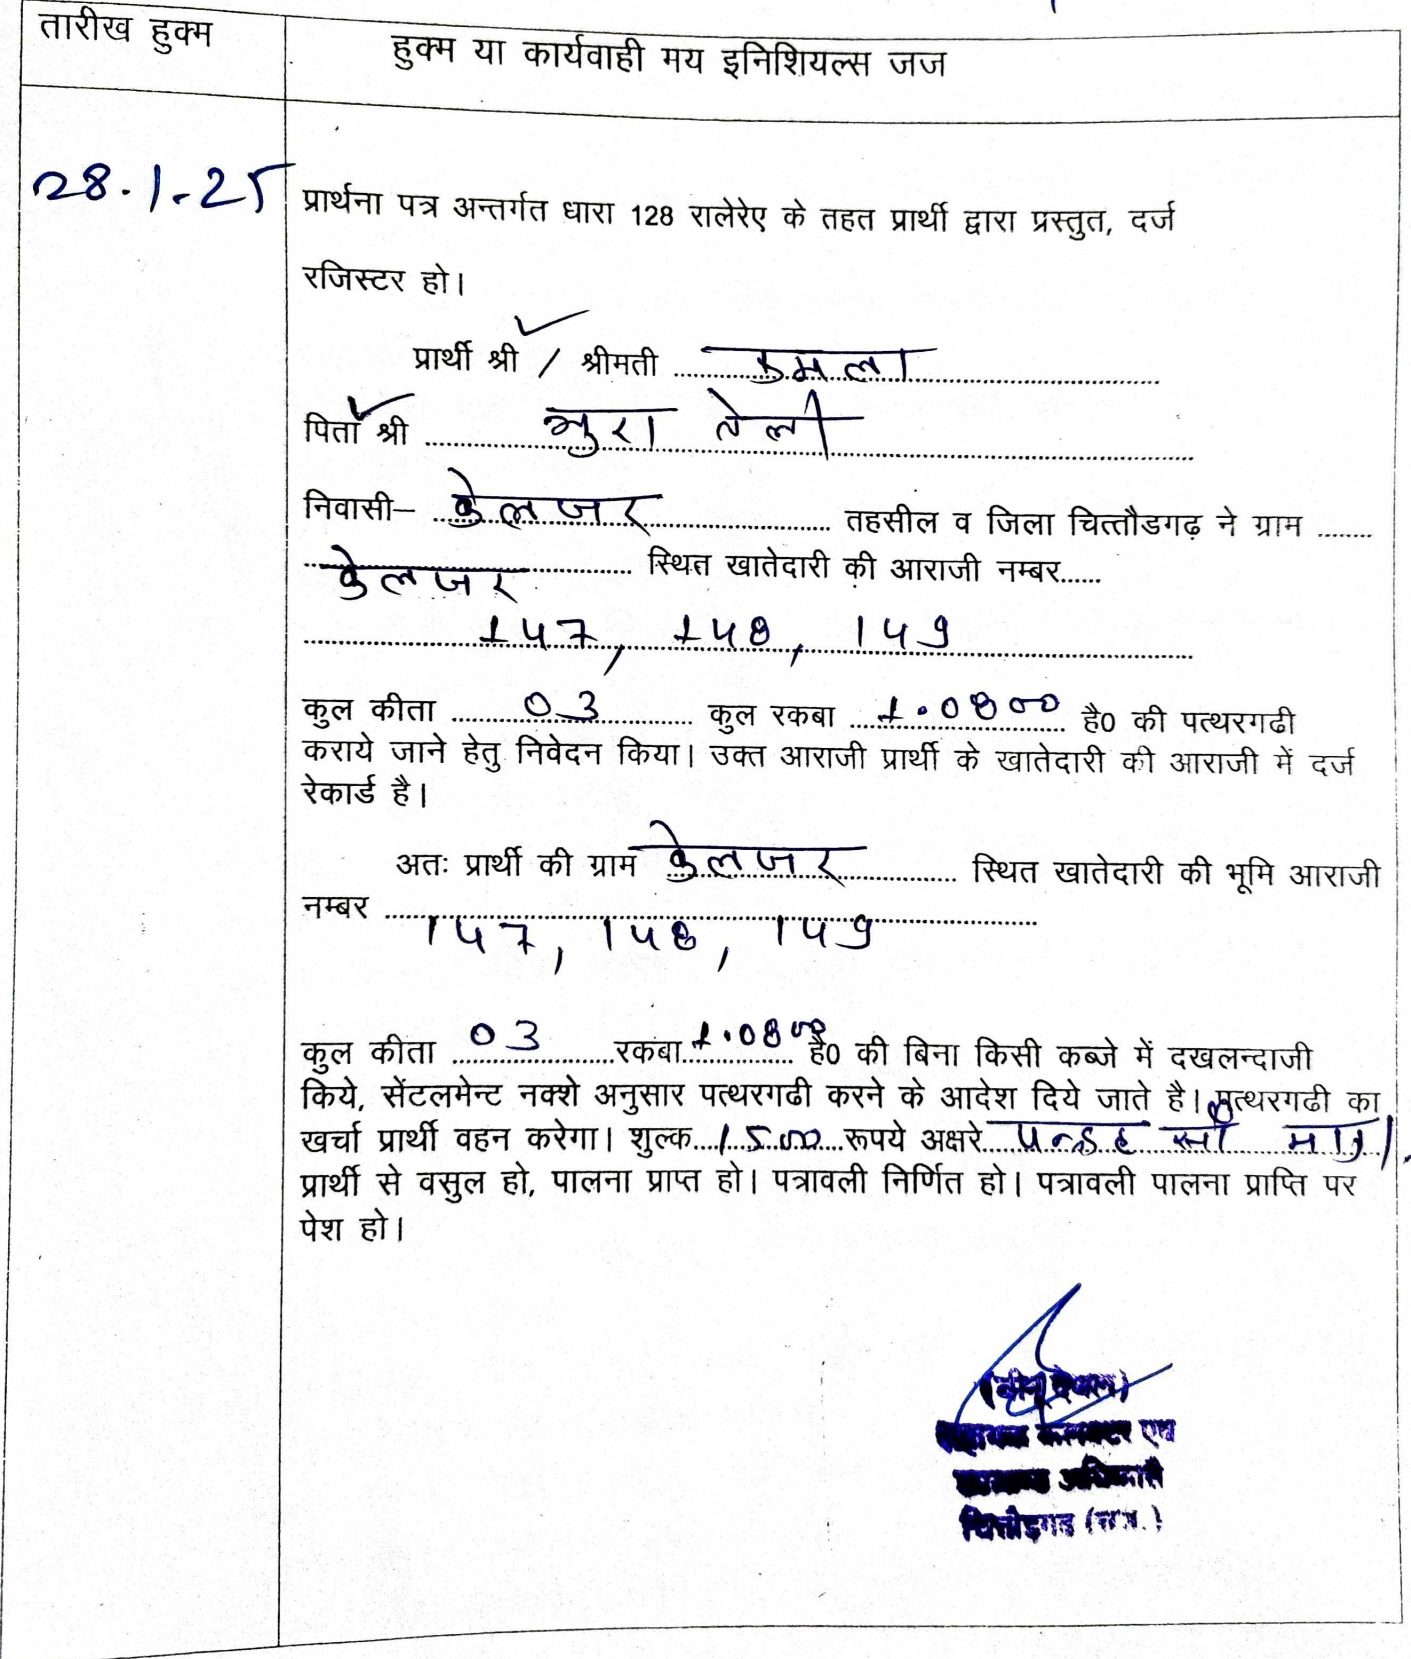 तारीख हुक्म
हुक्म या कार्यवाही मय इनिशियल्स जज
28.1.25
प्रार्थना पत्र अन्तर्गत धारा 128 रालेरेए के तहत प्रार्थी द्वारा प्रस्तुत, दर्ज
रजिस्टर हो।
प्रार्थी श्री / श्रीमती कमला
पिता श्री भुरा तेली
निवासी– केलजर तहसील व जिला चित्तौडगढ़ ने ग्राम
केलजर स्थित खातेदारी की आराजी नम्बर
147, 148, 149
कुल कीता 03 कुल रकबा 1.0800 है0 की पत्थरगढी
कराये जाने हेतु निवेदन किया। उक्त आराजी प्रार्थी के खातेदारी की आराजी में दर्ज
रेकार्ड है।
अतः प्रार्थी की ग्राम केलजर स्थित खातेदारी की भूमि आराजी
नम्बर
147, 148, 149
कुल कीता 03 रकबा 1.0800 है0 की बिना किसी कब्जे में दखलन्दाजी
किये, सेंटलमेन्ट नक्शे अनुसार पत्थरगढी करने के आदेश दिये जाते है। पत्थरगढी का
खर्चा प्रार्थी वहन करेगा। शुल्क 1500 रूपये अक्षरे पन्द्रह सौ मात्र।
प्रार्थी से वसुल हो, पालना प्राप्त हो। पत्रावली निर्णित हो। पत्रावली पालना प्राप्ति पर
पेश हो।
सहायक कलक्टर एवं
अधिकारी
चित्तौड़गढ़ (राज.)